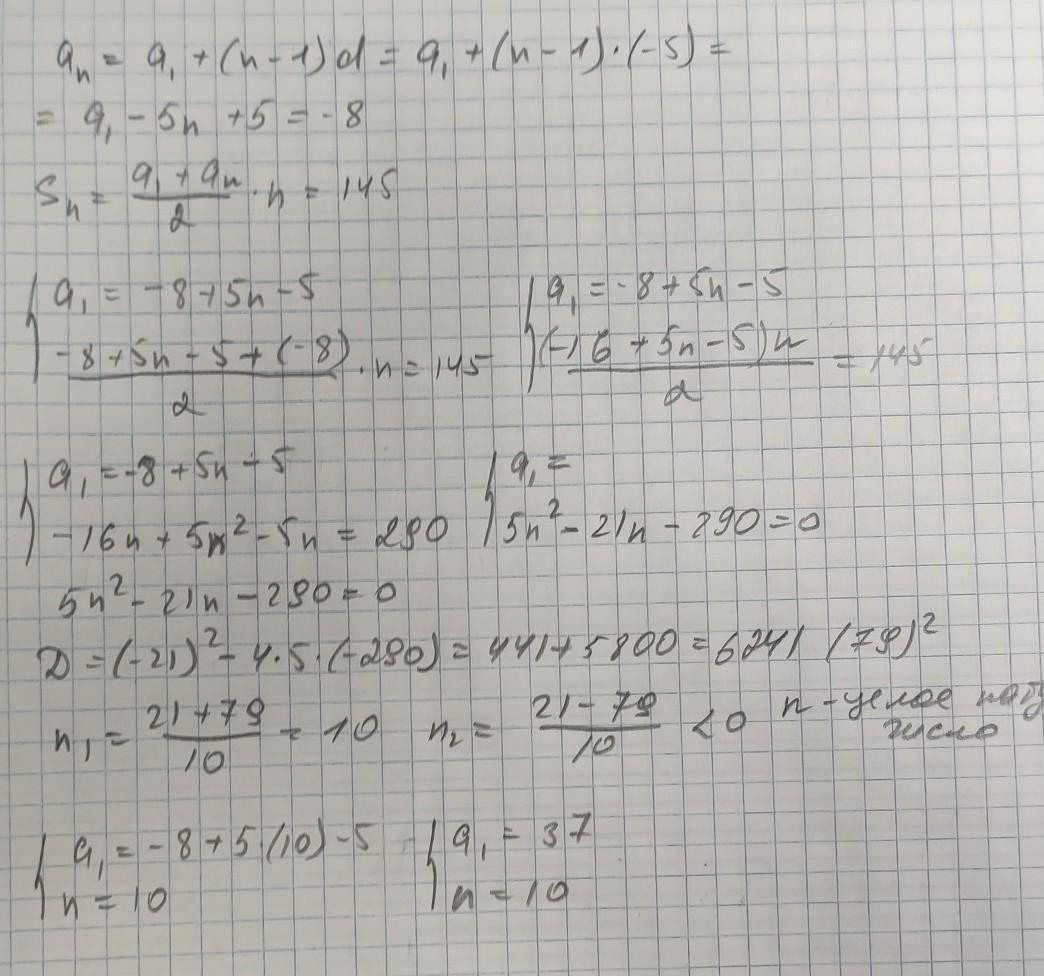 aₙ = a₁ + (n - 1)d = a₁ + (n - 1)·(-5) =
= a₁ - 5n + 5 = -8
Sₙ = (a₁ + aₙ)/2 · n = 145
{ a₁ = -8 + 5n - 5 { a₁ = -8 + 5n - 5
(-8 + 5n - 5 + (-8))/2 · n = 145 ((-16 + 5n - 5)n)/2 = 145
{ a₁ = -8 + 5n - 5 { a₁ =
-16n + 5n² - 5n = 290 5n² - 21n - 290 = 0
5n² - 21n - 290 = 0
D = (-21)² - 4·5·(-290) = 441 + 5800 = 6241 (79)²
n₁ = (21 + 79)/10 = 10 n₂ = (21 - 79)/10 < 0 n - целое
число
{ a₁ = -8 + 5·(10) - 5 { a₁ = 37
n = 10 n = 10